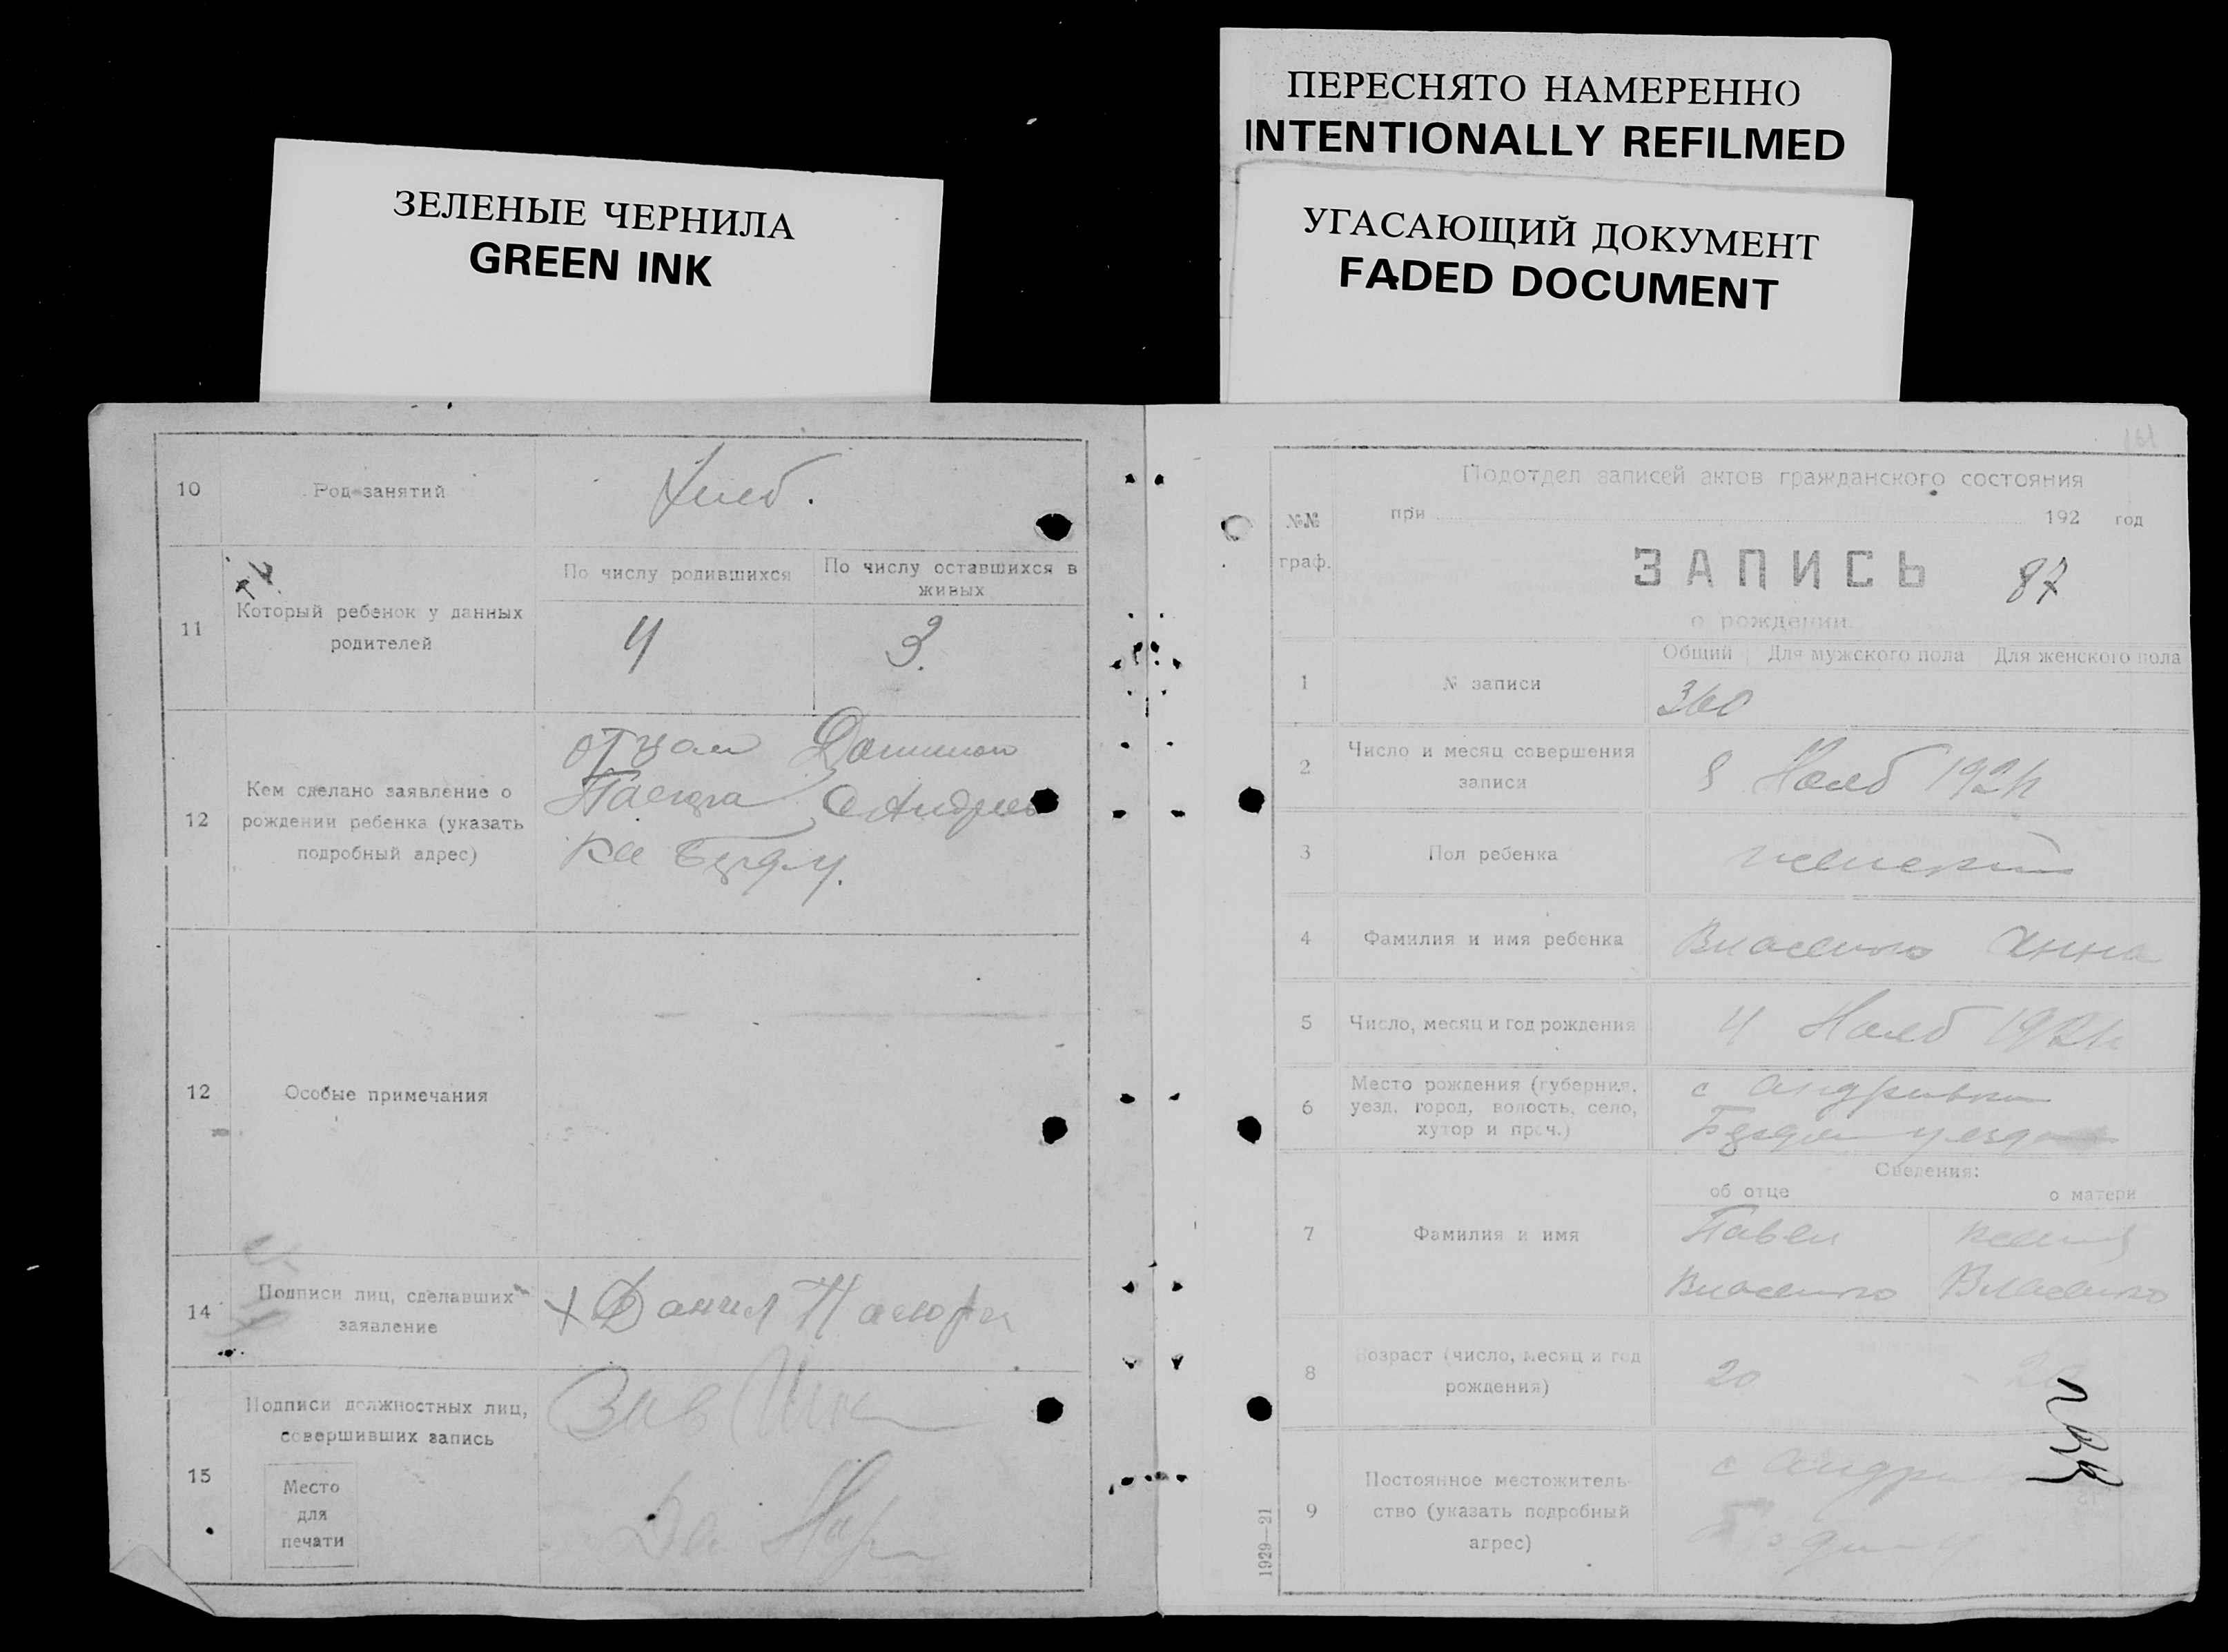 ПЕРЕСНЯТО НАМЕРЕННО
INTENTIONALLY REFILMED
УГАСАЮЩИЙ ДОКУМЕНТ
FADED DOCUMENT
ЗЕЛЕНЫЕ ЧЕРНИЛА
GREEN INK
10 Род занятий Хлеб.
11 Который ребенок у данных
родителей
По числу родившихся
По числу оставшихся в
живых
4 3.
12 Кем сделано заявление о
рождении ребенка (указать
подробный адрес)
отцом
12 Особые примечания
14 Подписи лиц, сделавших
заявление
Данил
15 Подписи должностных лиц,
совершивших запись
Место
для
печати
161
Подотдел записей актов гражданского состояния
№№
граф.
при 192 год
ЗАПИСЬ 87
о рождении.
Общий Для мужского пола Для женского пола
1 № записи 360
2 Число и месяц совершения
записи
8 Нояб 1921
3 Пол ребенка женский
4 Фамилия и имя ребенка Власенко Анна
5 Число, месяц и год рождения 4 Нояб 1921
6 Место рождения (губерния,
уезд, город, волость, село,
хутор и проч.)
с Андривки
уезда
Сведения:
об отце о матери
7 Фамилия и имя
Павел
Власенко Власенко
8 Возраст (число, месяц и год
рождения)
20
9 Постоянное местожитель-
ство (указать подробный
адрес)
с
1929—21